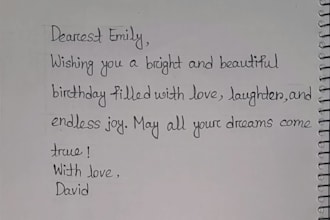 Dearest Emily,
Wishing you a bright and beautiful
birthday filled with love, laughter, and
endless joy. May all your dreams come
true!
With love,
David